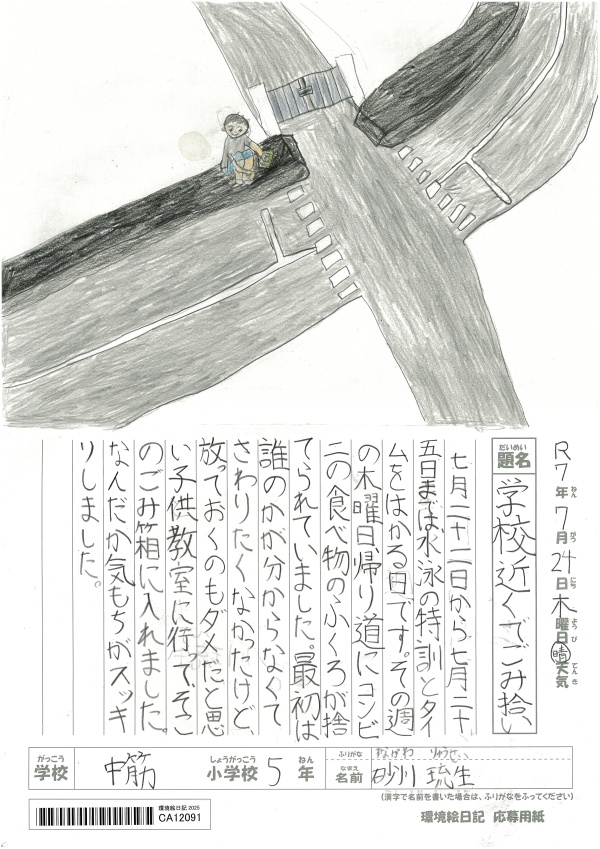 R7年ねん7月がつ24日にち木曜日ようび晴天気てんき
題名だいめい 学校近くでごみ拾い
七月二十二日から七月二十
五日までは水泳の特訓とタイ
ムをはかる日です。その週
の木曜日帰り道にコンビ
ニの食べ物のふくろが捨
てられていました。最初は
誰のかが分からなくて
さわりたくなかったけど、
放っておくのもダメだと思
い子供教室に行ってそこ
のごみ箱に入れました。
なんだか気もちがスッキ
りしました。
がっこう しょうがっこう ねん ふりがな なかわ りゅうせい
学校 中筋 小学校 5 年 なまえ 名前 砂川 琉生
(漢字で名前を書いた場合は、ふりがなをふってください)
環境絵日記 2025
CA12091
環境絵日記 応募用紙